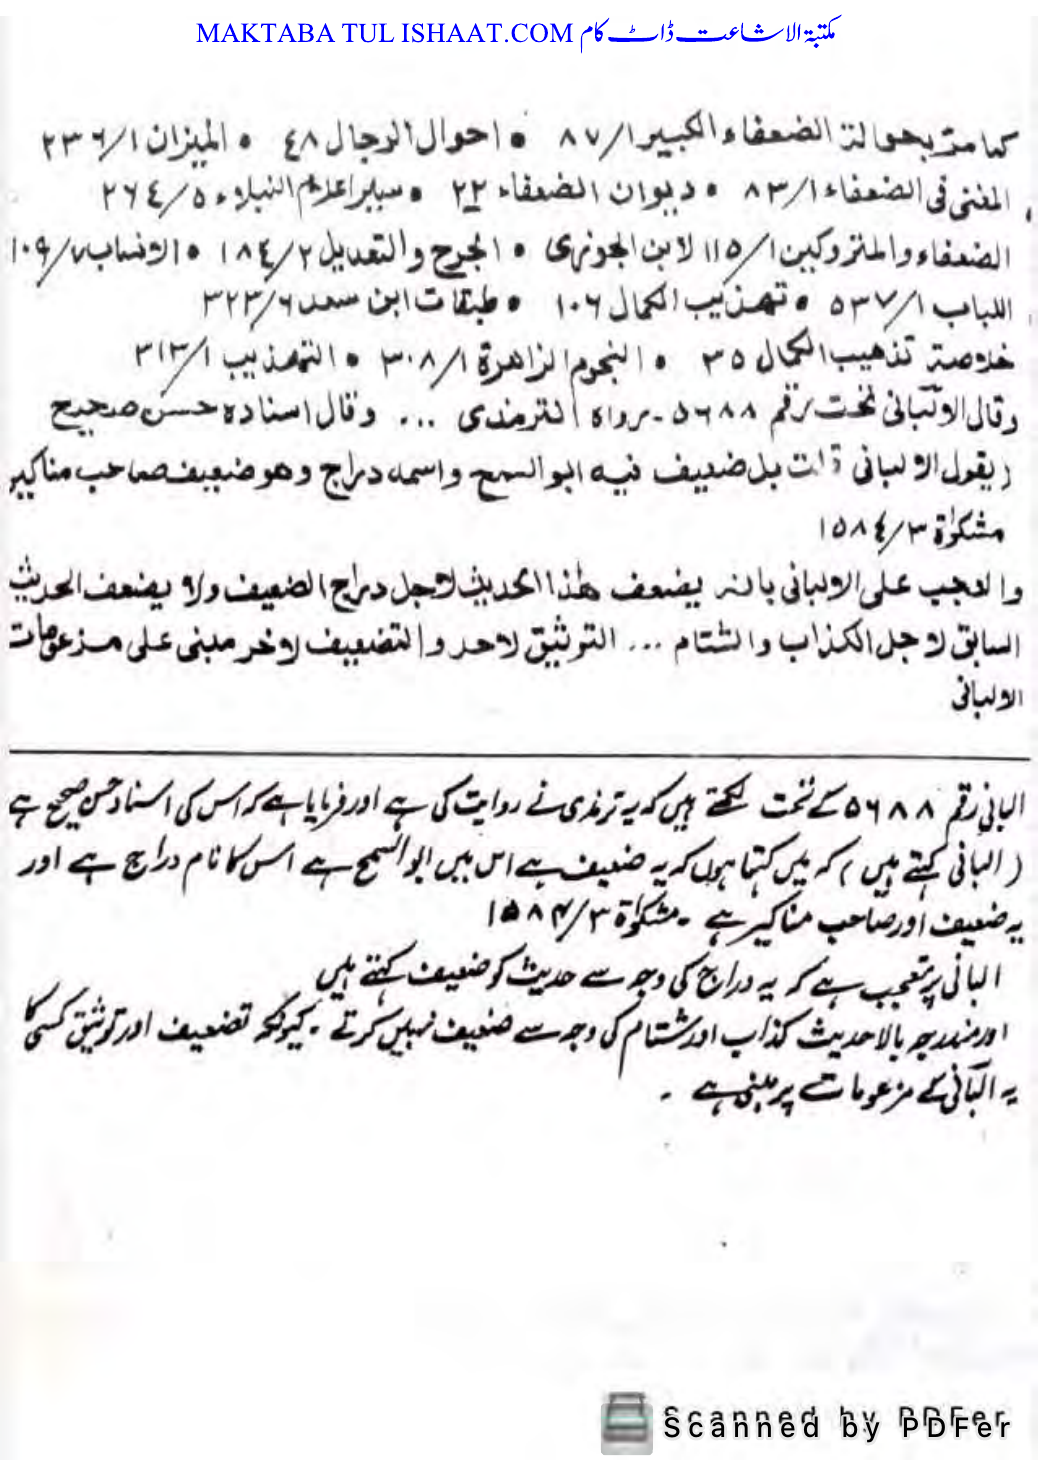 MAKTABA TUL ISHAAT.COM مکتبۃ الاشاعت ڈاٹ کام
کما مرّ بحوالة الضعفاء الکبیر ۱/۸۷ • احوال الرجال ٤٨ • المیزان ۱/۲۳۶
المغنی فی الضعفاء ۱/۸۳ • دیوان الضعفاء ۲۲ • سیر اعلام النبلاء ۵/۲۶٤
الضعفاء والمتروکین ۱/۱۱۵ لابن الجوزی • الجرح والتعدیل ۲/۱۸٤ • الانساب ۷/۱۰۹
اللباب ۱/۵۳۷ • تهذیب الکمال ۱۰۶ • طبقات ابن سعد ۶/۳۲۳
خلاصة تذهیب الکمال ۳۵ • النجوم الزاهرة ۱/۳۰۸ • التهذیب ۱/۳۱۳
وقال الالبانی تحت رقم ۵۶۸۸ - رواه الترمذی ... وقال اسناده حسن صحیح
(یقول الالبانی) قلت بل ضعیف فیه ابو السمح واسمه دراج وهو ضعیف صاحب مناکیر
مشکوٰة ۳/۱۵۸٤
والعجب علی الالبانی بانه یضعف هٰذا الحدیث لاجل دراج الضعیف ولا یضعف الحدیث
السابق لاجل الکذاب والشتام ... التوثیق لاحد والتضعیف لاخر مبنی علی مزعومات
الالبانی
البانی رقم ۵۶۸۸ کے تحت لکھتے ہیں کہ یہ ترمذی نے روایت کی ہے اور فرمایا ہے کہ اس کی اسناد حسن صحیح ہے
(البانی کہتے ہیں) کہ میں کہتا ہوں کہ یہ ضعیف ہے اس میں ابو السمح ہے اس کا نام دراج ہے اور
یہ ضعیف اور صاحب مناکیر ہے ۔ مشکوٰۃ ۳/۱۵۸۴
البانی پر تعجب ہے کہ یہ دراج کی وجہ سے حدیث کو ضعیف کہتے ہیں
اور مندرجہ بالا حدیث کذاب اور شتام کی وجہ سے ضعیف نہیں کرتے ۔ کیونکہ تضعیف اور توثیق کسی کا
یہ البانی کے مزعومات پر مبنی ہے ۔
Scanned by PDFer